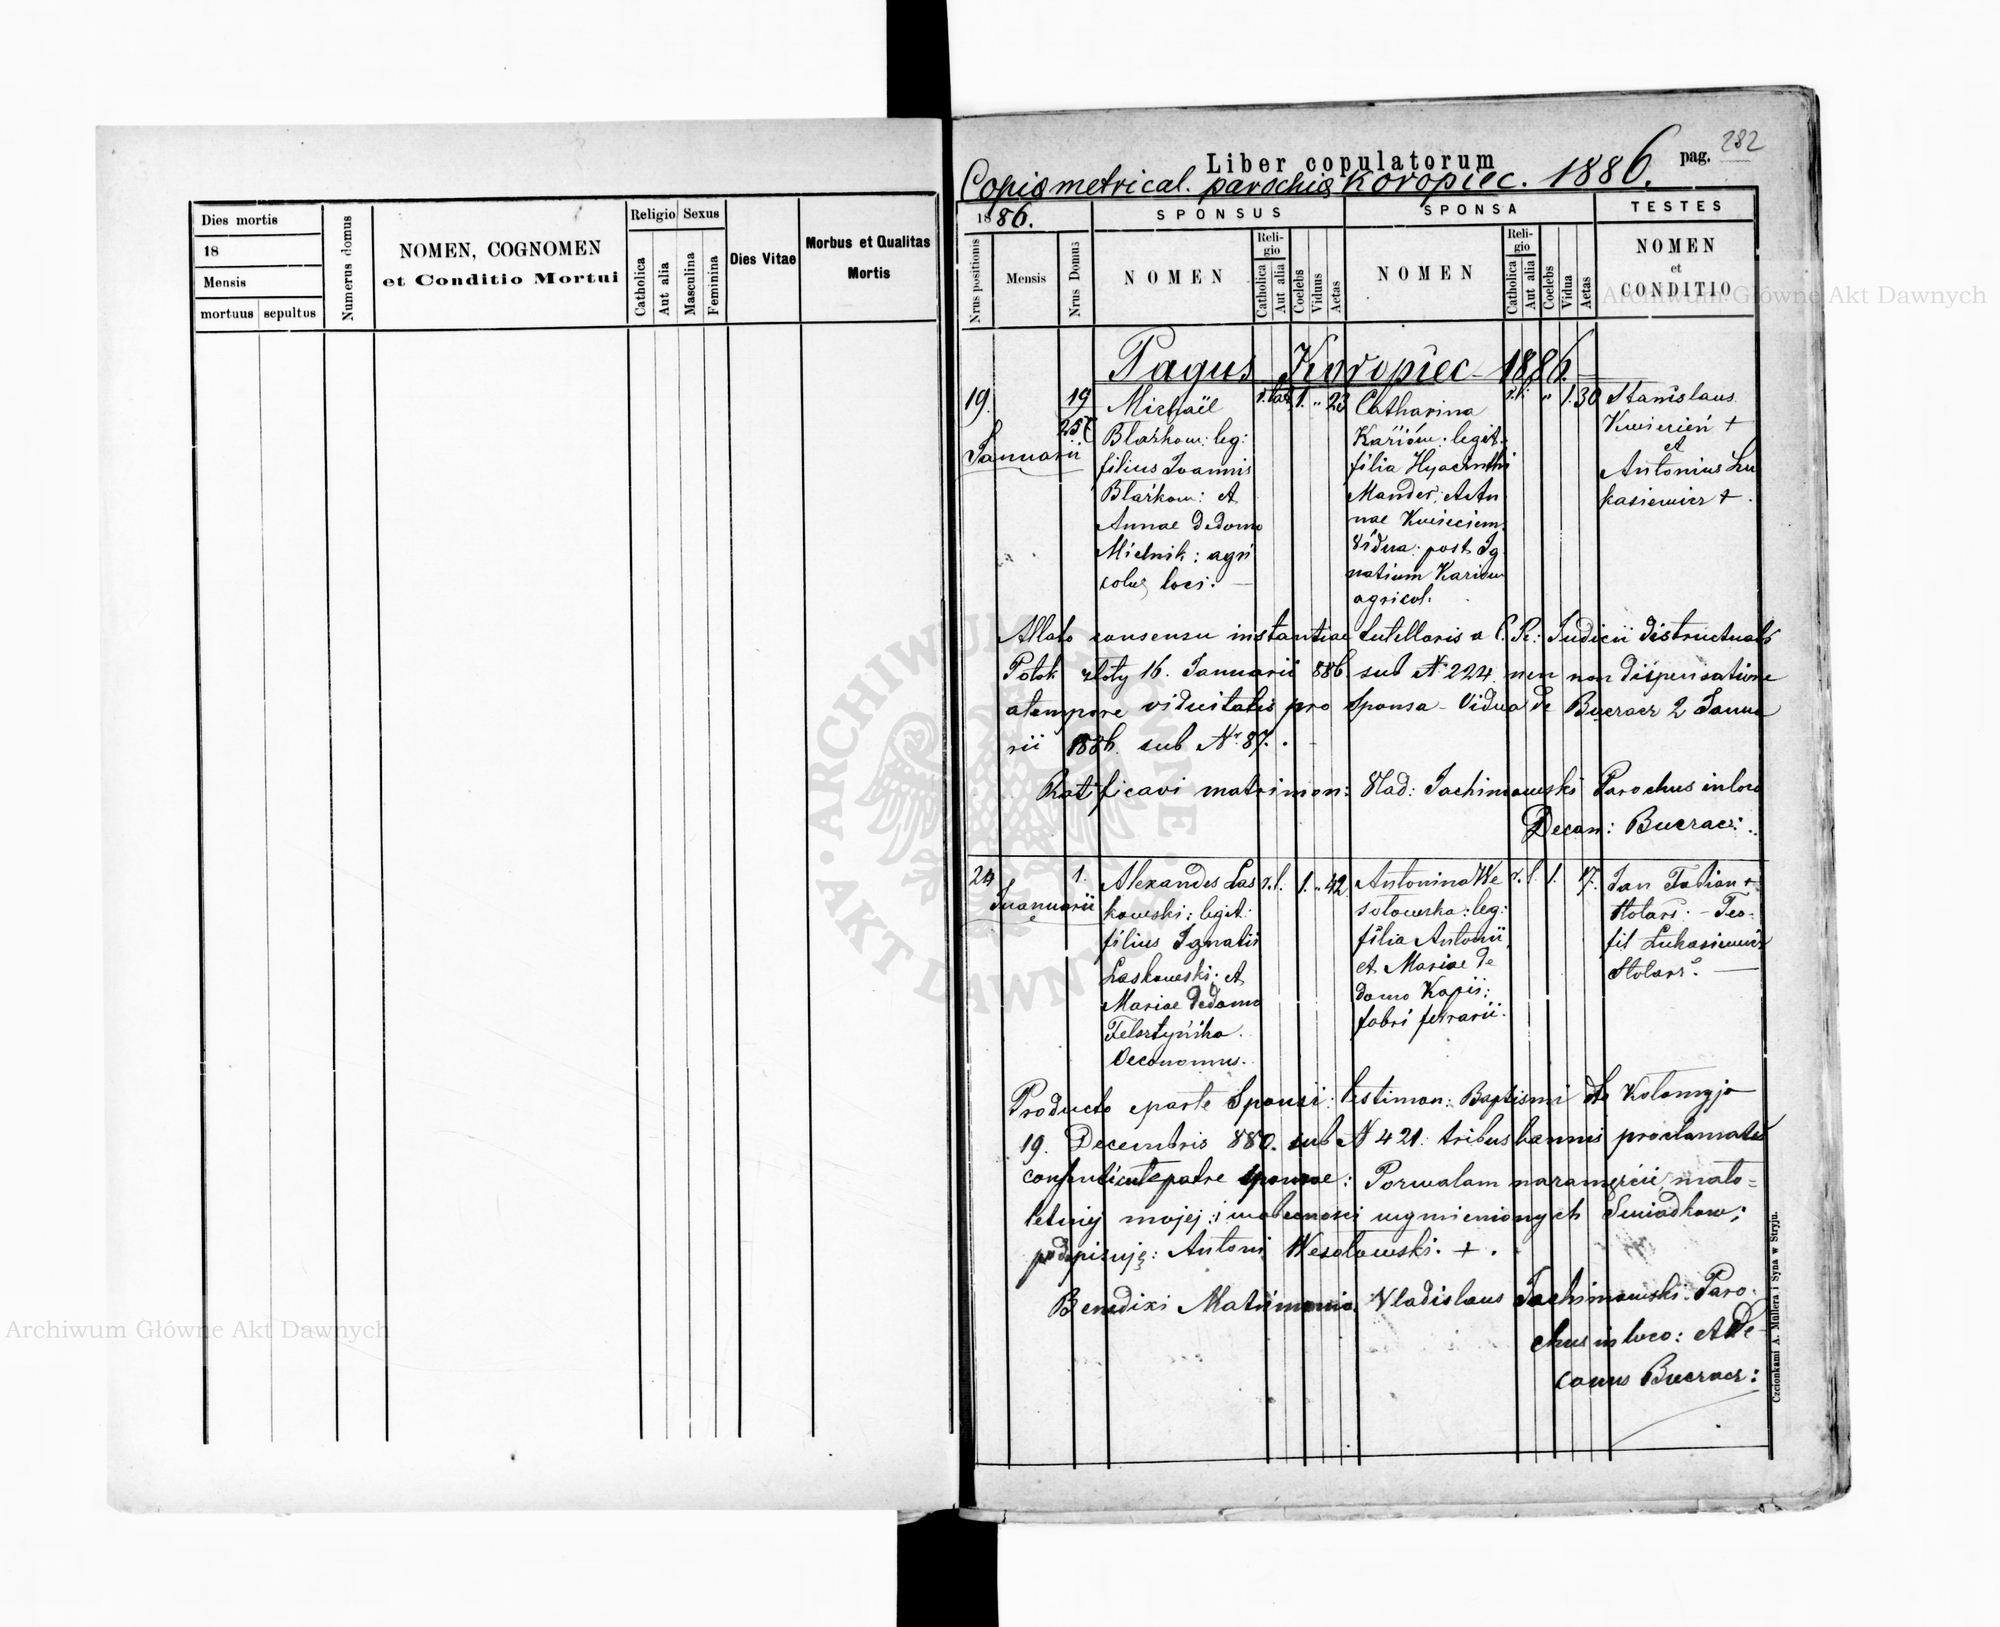 Dies mortis
18
Mensis
mortuus sepultus
Numerus domus
NOMEN, COGNOMEN
et Conditio Mortui
Religio Sexus
Catholica
Aut alia
Masculina
Feminina
Dies Vitae
Morbus et Qualitas
Mortis
282
Liber copulatorum pag.
Copia metrical. parochia Koropiec. 1886.
1886. SPONSUS SPONSA TESTES
Nrus positionis
Mensis
Nrus Domus
NOMEN
Reli-
gio
Catholica
Aut alia
Coelebs
Viduus
Aetas
NOMEN
Reli-
gio
Catholica
Aut alia
Coelebs
Vidua
Aetas
NOMEN
et
CONDITIO
Pagus Koropiec 1886.
19.
Januarii
19
Michaël
Blażkow: leg:
filius Joannis
Blażkow: et
Annae de domo
Mielnik: agri
colae loci.
r. lat. 1. " 23
Catharina
legit.
filia Hyacinthi
Mander: et An
nae
Vidua post Ig
natium
agricol.
" 1. 30
Stanislaus
Kwiecień +
et
Antonius Łu
kasiewicz +.
Allato consensu instantiae tutellaris a C. R.: Judicii districtualis
Potok złoty 16. Januarii 886 sub N. 224. nec non dispensatione
a tempore viduitatis pro Sponsa - Vidua de Buczacz 2 Janua
rii 1886. sub Nr. 87.
Ratificavi matrimon: Vlad: Jachimowski Parochus in loco
Decan: Buczacz:
24
Juanuarii
1.
Alexander Las
kowski: legit:
filius Ignatii
Laskowski: et
Mariae de domo
Felsztyńska.
Oeconomus.
r. l. 1. " 42
Antonina We
sołowska: leg:
filia Antonii
et Mariae de
domo Kapis:
fabri ferrarii.
r. l. 1. 17.
Jan Fabian +
Stolarz: - Teo-
fil Łukasiewicz
Stolarz.
Producto e parte Sponsi: testimon: Baptismi de Kołomyja
19. Decembris 880. sub N 421. tribus bannis proclamatis
patre sponsae: Pozwalam na zamęźcie mało=
letniej mojej: i w obecności wymienionych Swiadkow;
podpisuję: Antoni Wesołowski. +.
Benedixi Matrimonio Vladislaus Jachimowski. Paro.
chus in loco: et De
canus Buczacz:
Czcionkami A. Müllera i Syna w Stryju.
ARCHIWUM GŁÓWNE AKT DAWNYCH
Archiwum Główne Akt Dawnych
Archiwum Główne Akt Dawnych